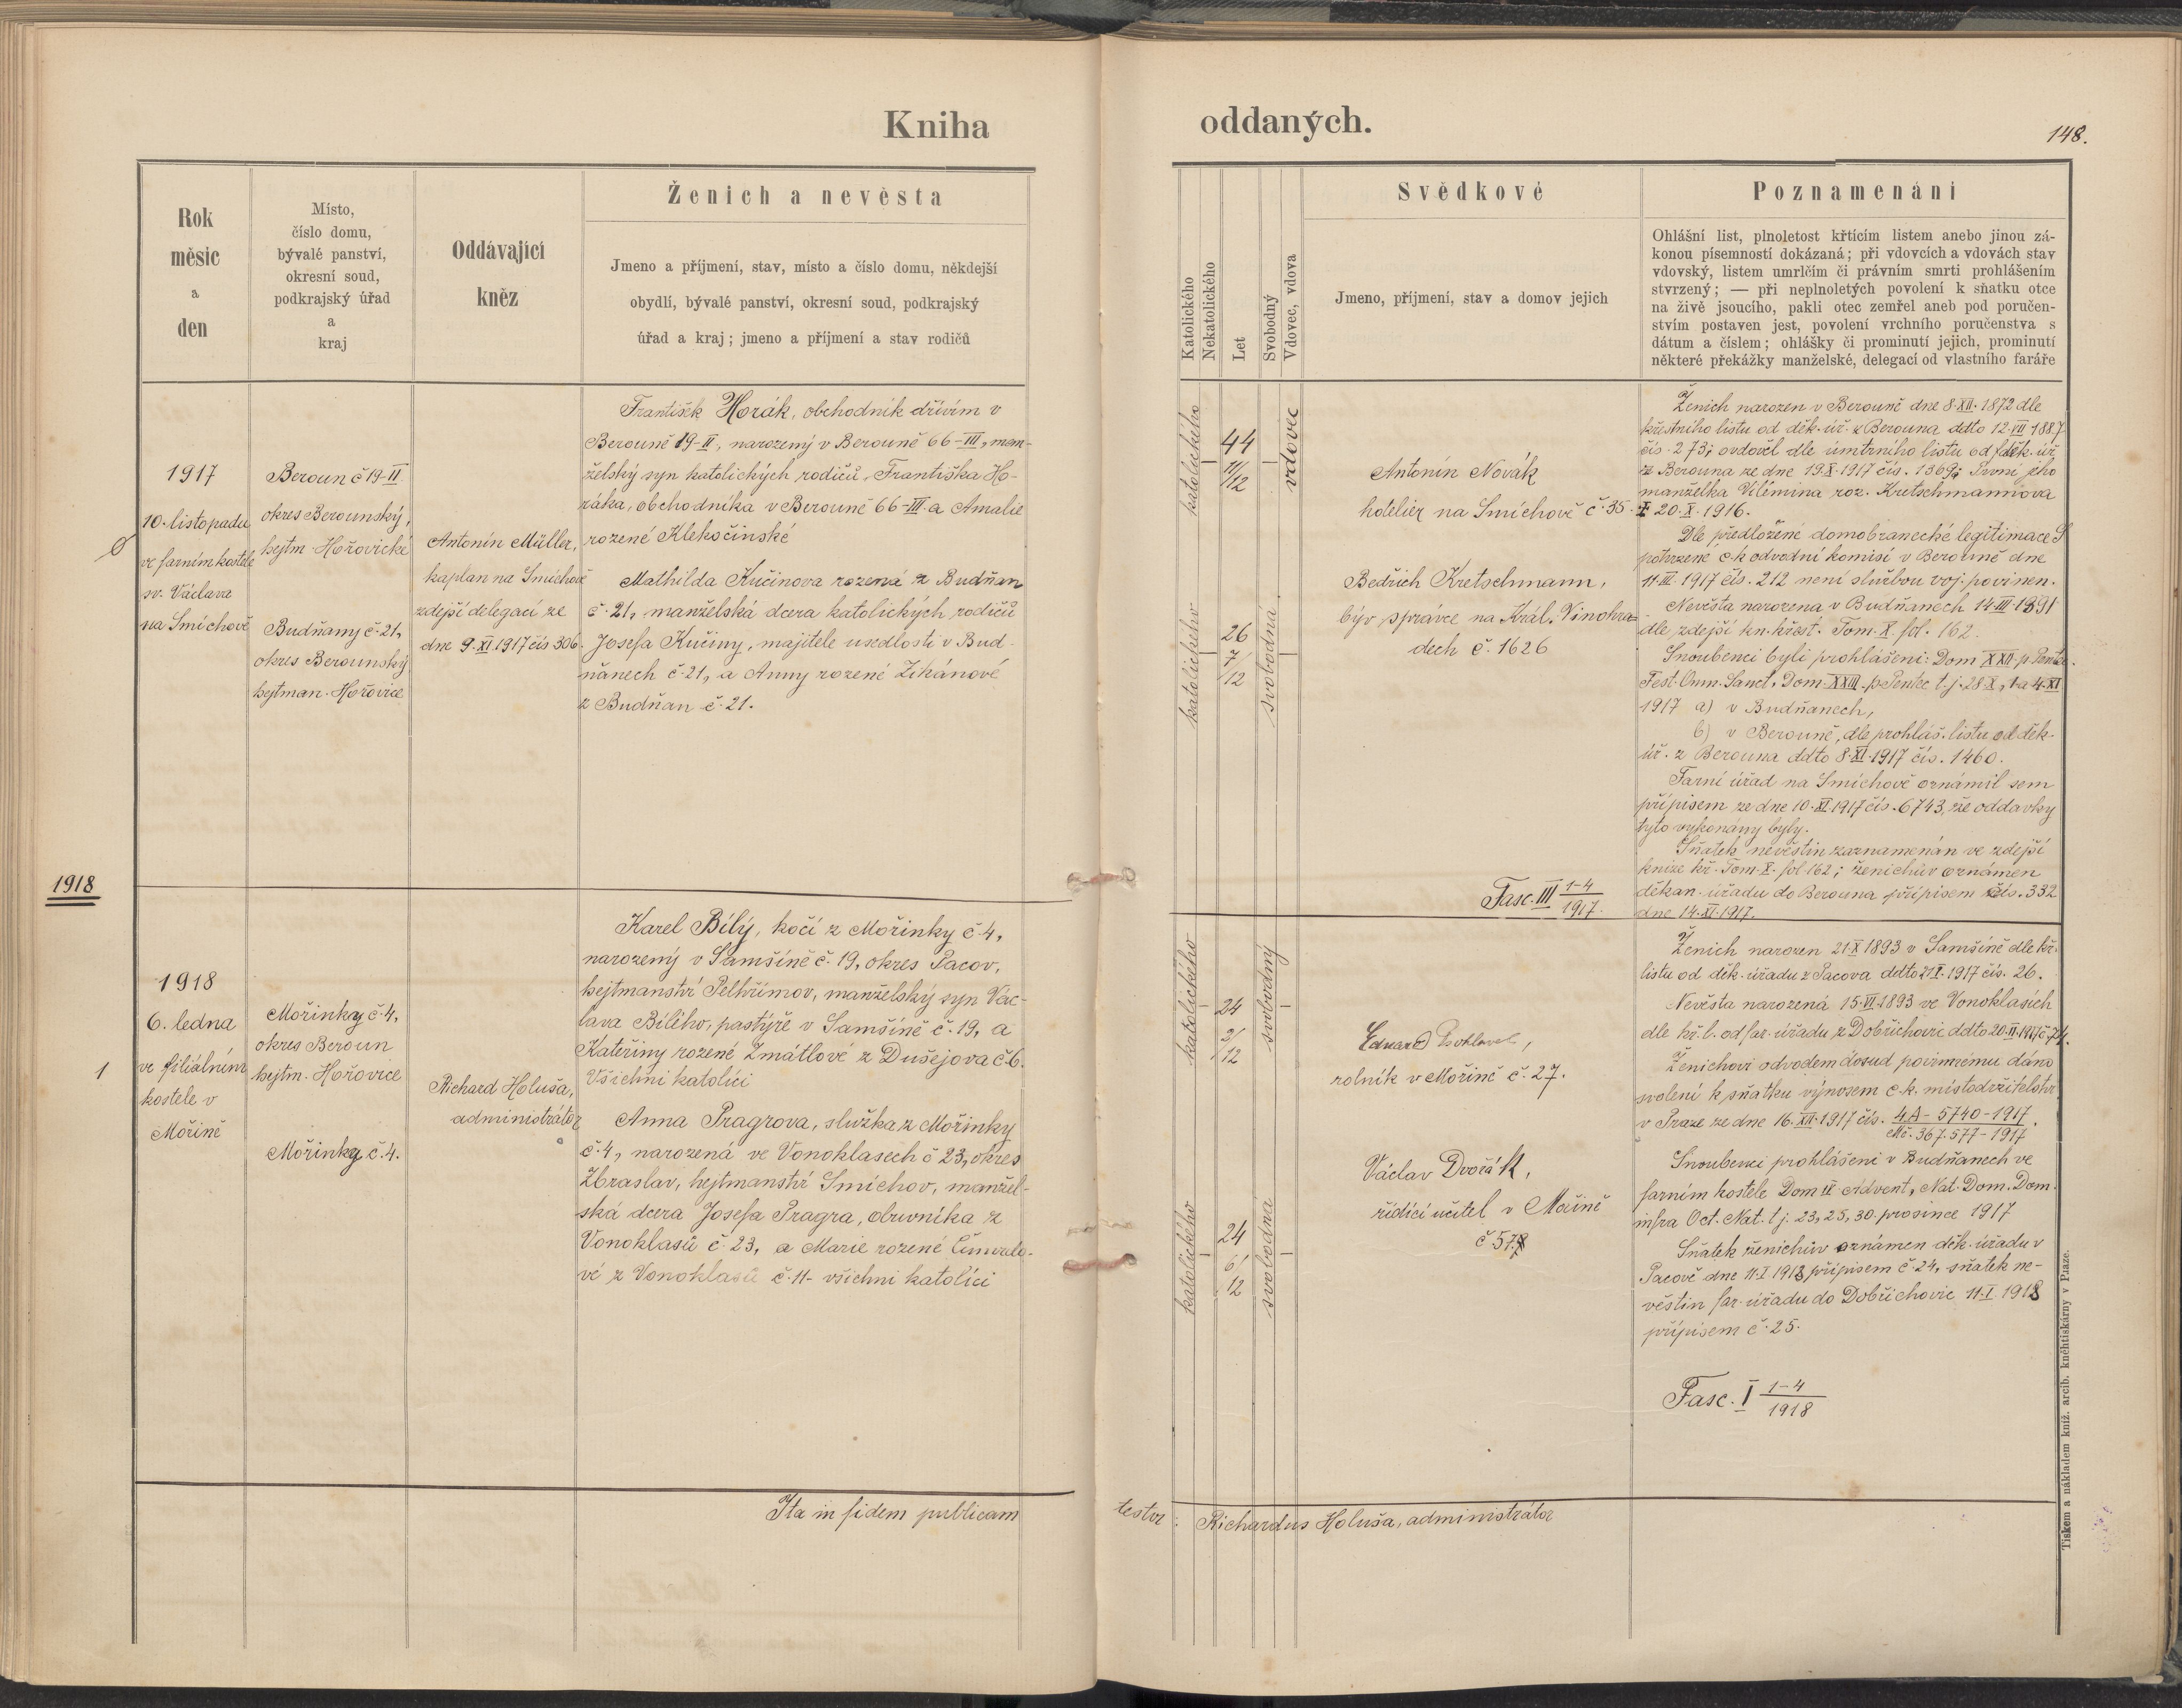 Kniha
oddaných.
148.
Rok
měsíc
a
den
Místo,
číslo domu,
bývalé panství,
okresní soud,
podkrajský úřad
a
kraj
Oddávající
kněz
Ženich a nevěsta
Jmeno a příjmení, stav, místo a číslo domu, někdejší
obydlí, bývalé panství, okresní soud, podkrajský
úřad a kraj; jmeno a příjmení a stav rodičů
Katolického
Nekatolického
Let
Svobodný
Vdovec, vdova
Svědkové
Jmeno, příjmení, stav a domov jejich
Poznamenání
Ohlášní list, plnoletost křtícím listem anebo jinou zá-
konou písemností dokázaná; při vdovcích a vdovách stav
vdovský, listem umrlčím či právním smrti prohlášením
stvrzený; — při neplnoletých povolení k sňatku otce
na živě jsoucího, pakli otec zemřel aneb pod poručen-
stvím postaven jest, povolení vrchního poručenstva s
dátum a číslem; ohlášky či prominutí jejich, prominutí
některé překážky manželské, delegací od vlastního faráře
1917
10. listopadu
ve farním kostele
sv. Václava
na Smíchově
Beroun č 19-II
okres Berounský,
hejtm. Hořovické
Budňany č. 21,
okres Berounský
hejtman. Hořovice
Antonín Müller,
kaplan na Smíchově
zdejší delegací ze
dne 9.XI.1917 čís 306.
František Horák, obchodník dřívím v
Berouně 19-II, narozený v Berouně 66-III, man-
želský syn katolických rodičů Františka Ho-
ráka, obchodníka v Berouně 66-III a Amalie
rozené Klekočinské
Mathilda Kučinova rozená z Budňan
č. 21, manželská dcera katolických rodičů
Josefa Kučiny, majitele usedlosti v Bud-
ňanech č. 21, a Anny rozené Zikánové
z Budňan č. 21.
katolického
44
11/12
vdovec
katolického
26
7/12
svobodna
Antonín Novák
hotelier na Smíchově č. 35.
Bedřich Kretschmann,
býv správce na Král. Vinohra-
dech č. 1626
Fasc. III 1-4/1917.
Ženich narozen v Berouně dne 8.XII.1872 dle
křestního listu od děk. úř. z Berouna ddto 12.VII 1887
čís. 273; ovdověl dle úmrtního listu od děk. úř.
z Berouna ze dne 19.X.1917 čís. 1369; První jeho
manželka Vilémina roz. Kretschmannova
† 20.X.1916.
Dle předložené domobranecké legitimace
potvrzené c.k. odvodní komisí v Berouně dne
11.III.1917 čís. 212 není službou voj. povinen.
Nevěsta narozena v Budňanech 14.III.1891
dle zdejší kn. křest. Tom. X. fol. 162.
Snoubenci byli prohlášeni: Dom XXII. p. Pentec.
Fest. Omn. Sanct., Dom. XXIII. p. Pentec t.j. 28.X, 1. a 4.XI
1917 a) v Budňanech,
b) v Berouně, dle prohláš. listu od děk.
úř. z Berouna ddto 8.XI.1917 čís. 1460.
Farní úřad na Smíchově oznámil sem
přípisem ze dne 10.XI.1917 čís. 6743, že oddavky
tyto vykonány byly.
Sňatek nevěstin zaznamenán ve zdejší
knize kř. Tom. X. fol 162; ženichův oznámen
děkan. úřadu do Berouna přípisem čís. 332
dne 14.XI.1917.
1918
1
1918
6. ledna
ve filiálním
kostele v
Mořině
Mořinky č. 4,
okres Beroun
hejtm. Hořovice
Mořinky č. 4.
Richard Holuša,
administrátor
Karel Bílý, kočí z Mořinky č. 4,
narozený v Samšíně č. 19, okres Pacov,
hejtmanství Pelhřimov, manželský syn Vác-
lava Bílého, pastýře v Samšíně č. 19, a
Kateřiny rozené Zmátlové z Dušejova č. 6.
Všichni katolíci
Anna Pragrova, služka z Mořinky
č. 4, narozená ve Vonoklasech č 23, okres
Zbraslav, hejtmanství Smíchov, manžel-
ská dcera Josefa Pragra, obuvníka z
Vonoklasů č. 23, a Marie rozené
vé z Vonoklasů č. 11 - všichni katolíci
katolického
24
2/12
svobodný
katolického
24
6/12
svobodna
Eduard
rolník v Mořině č. 27.
Václav Dvořák,
řídící učitel v Mořině
č 57.
Ženich narozen 21.X.1893 v Samšíně dle kř.
listu od děk. úřadu z Pacova ddto 21.I.1917 čís. 26.
Nevěsta narozená 15.VI.1893 ve Vonoklasích
dle kř. l. od far. úřadu z Dobřichovic ddto 20.II.1917 č. 74.
Ženichovi odvodem dosud povinnému dáno
svolení k sňatku výnosem c.k. místodržitelství
v Praze ze dne 16.XII.1917 čís. 4.A - 5740-1917.
Mč. 367.577-1917
Snoubenci prohlášeni v Budňanech ve
farním kostele Dom IV Advent, Nat. Dom. Dom.
infra Oct. Nat. t j. 23, 25, 30. prosince 1917
Sňatek ženichův oznámen děk. úřadu v
Pacově dne 11.I.1918 přípisem č. 24, sňatek ne-
věstin far. úřadu do Dobřichovic 11.I.1918
přípisem č. 25.
Fasc. I 1-4/1918
Ita in fidem publicam
testor: Richardus Holuša, administrátor
Tiskem a nákladem kníž. arcib. kněhtiskárny v Praze.